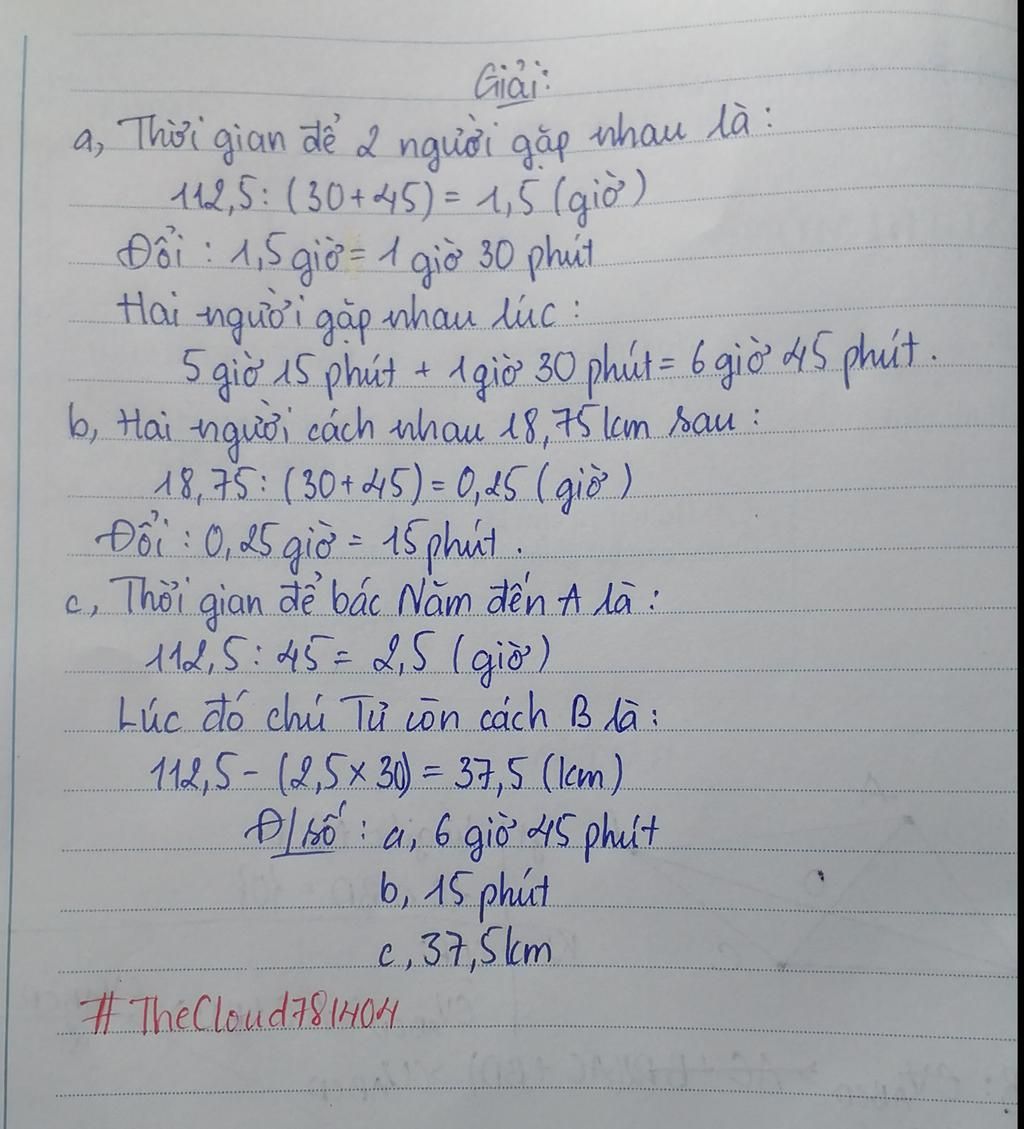 Giải:
a, Thời gian để 2 người gặp nhau là:
112,5: (30+45) = 1,5 (giờ)
Đổi : 1,5 giờ = 1 giờ 30 phút
Hai người gặp nhau lúc :
5 giờ 15 phút + 1 giờ 30 phút = 6 giờ 45 phút.
b, Hai người cách nhau 18,75 km sau :
18,75: (30+45) = 0,25 (giờ)
Đổi : 0,25 giờ = 15 phút.
c, Thời gian để bác Năm đến A là :
112,5: 45 = 2,5 (giờ)
Lúc đó chú Tư còn cách B là :
112,5 - (2,5 x 30) = 37,5 (km)
Đ/số : a, 6 giờ 45 phút
b, 15 phút
c, 37,5 km
# TheCloud781404